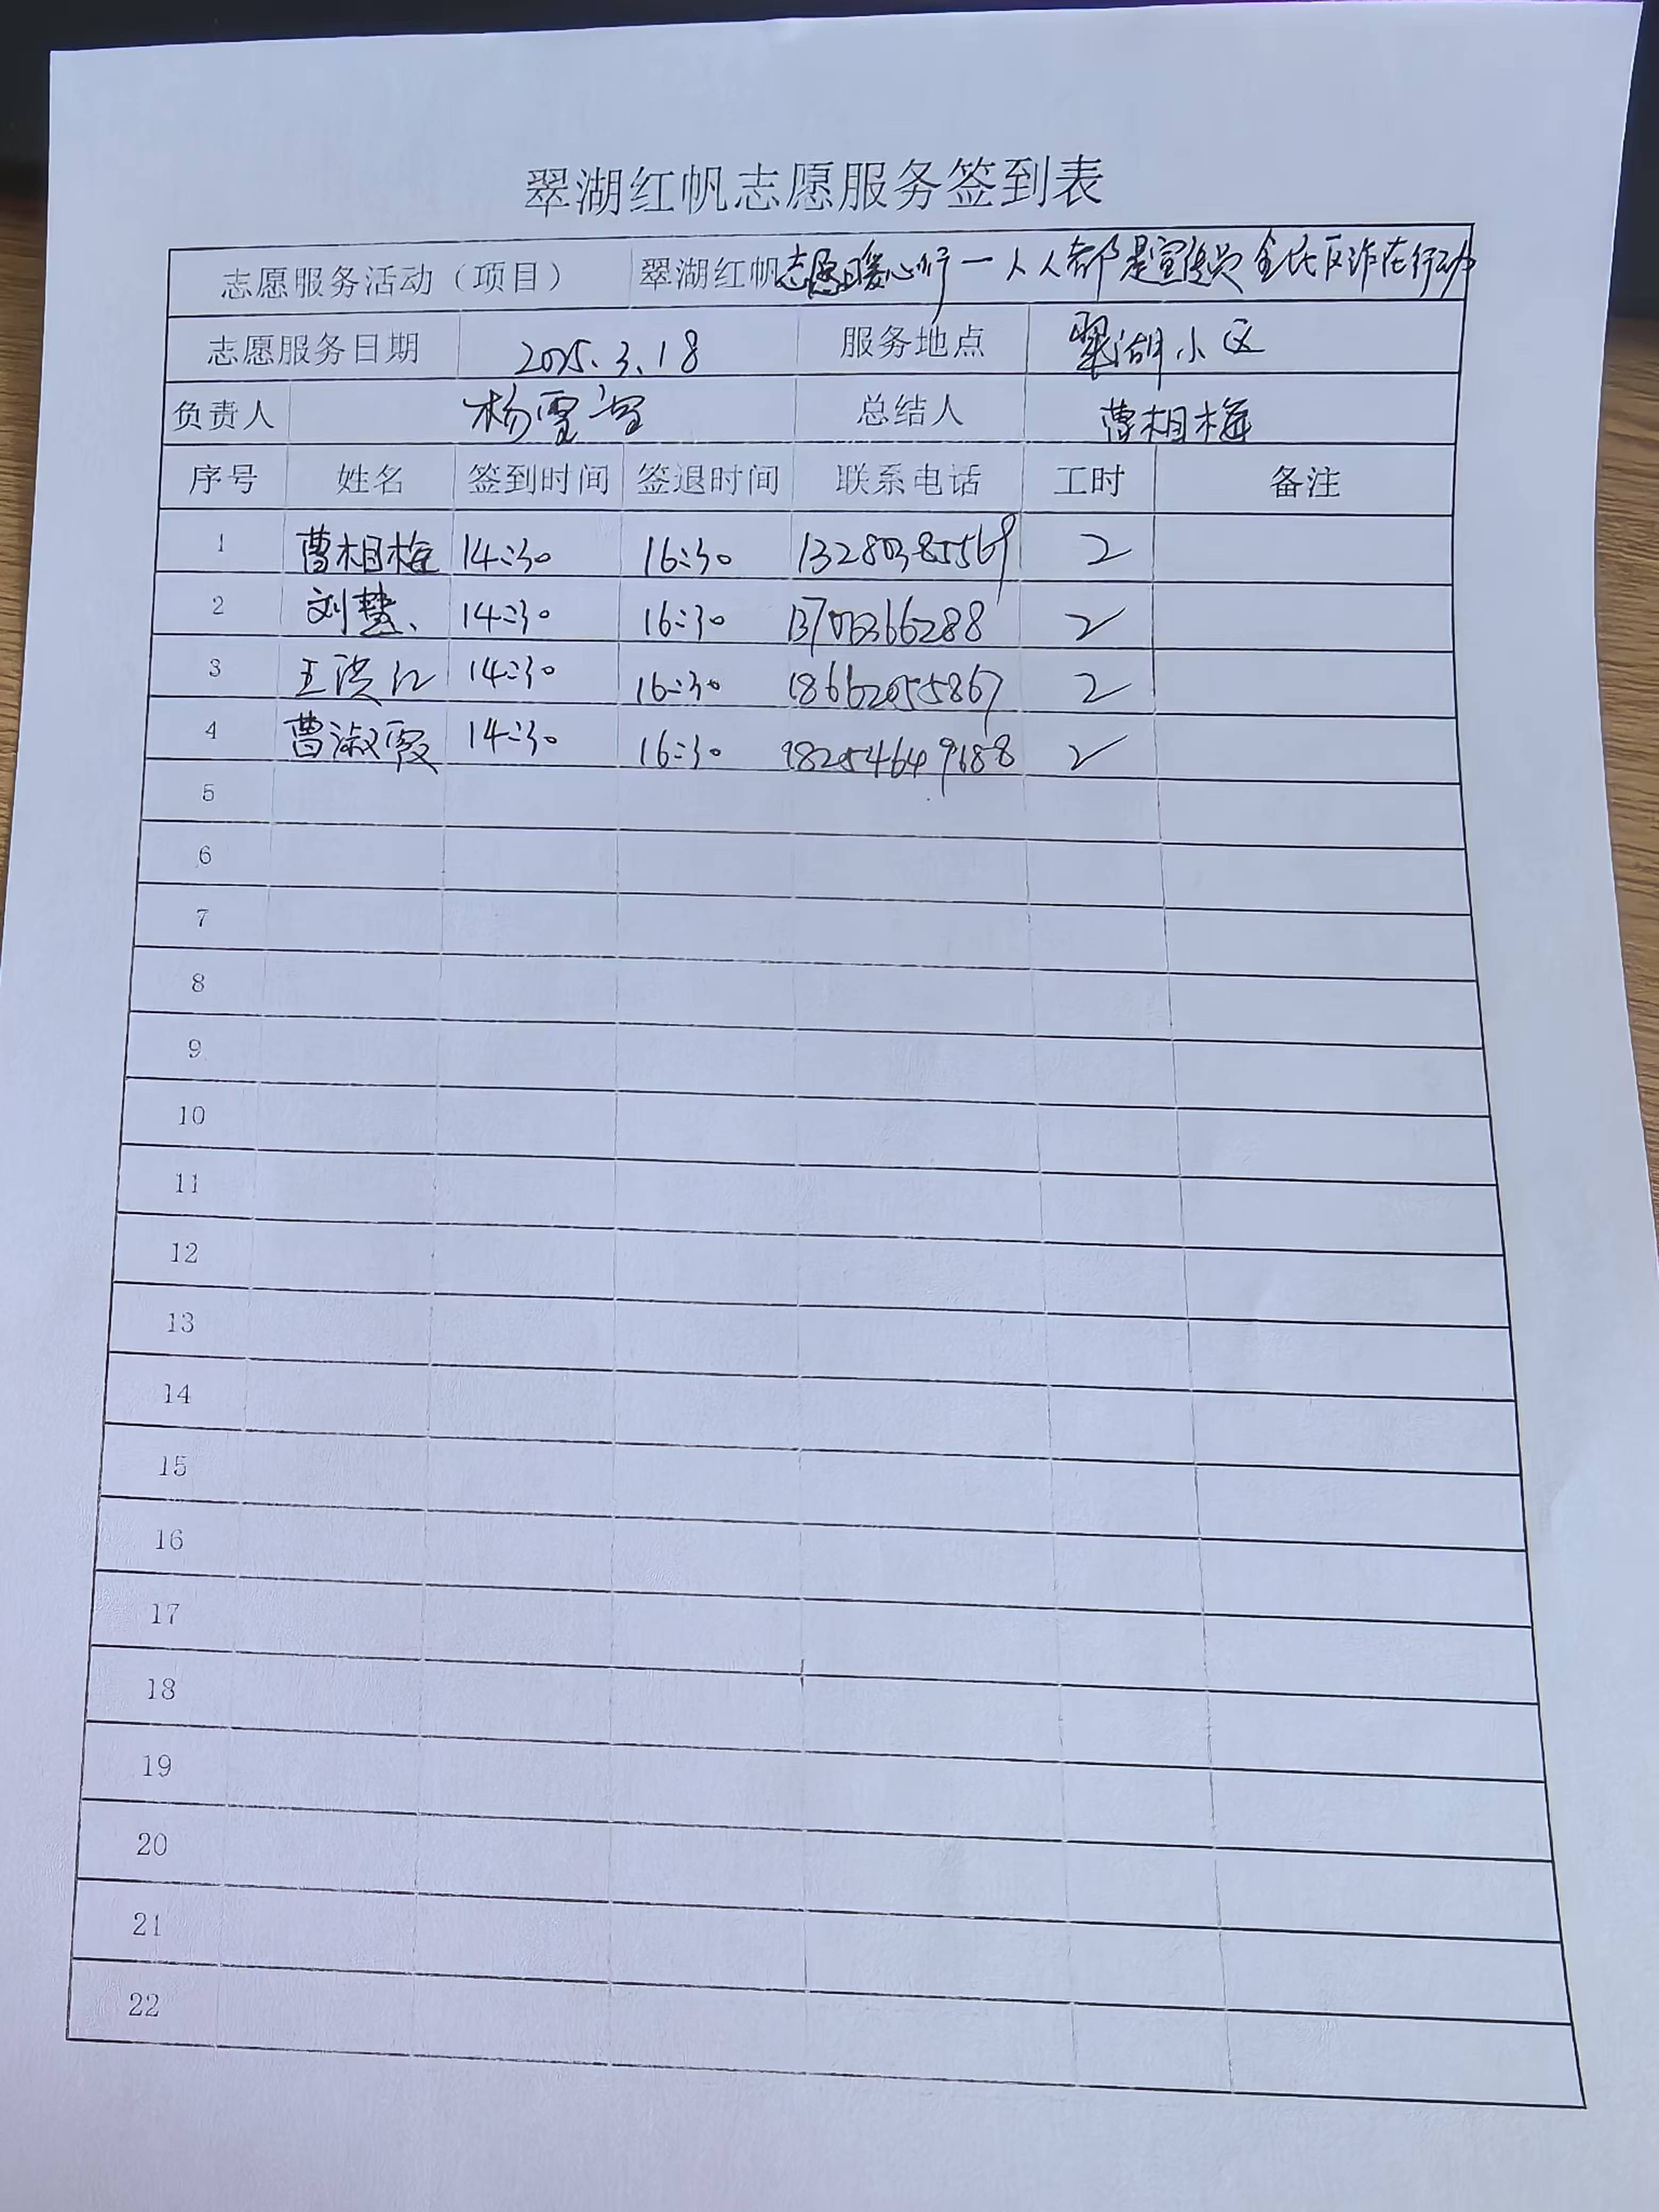 翠湖红帆志愿服务签到表
志愿服务活动（项目） 翠湖红帆志愿暖心行一人人都是宣传员 全民反诈在行动
志愿服务日期 2025.3.18 服务地点 翠湖小区
负责人 杨雪 总结人 曹相梅
序号 姓名 签到时间 签退时间 联系电话 工时 备注
1 曹相梅 14:30 16:30 13280385569 2
2 刘慧 14:30 16:30 2
3 王洪江 14:30 16:30 18662055867 2
4 曹淑霞 14:30 16:30 18254649688 2
5
6
7
8
9
10
11
12
13
14
15
16
17
18
19
20
21
22